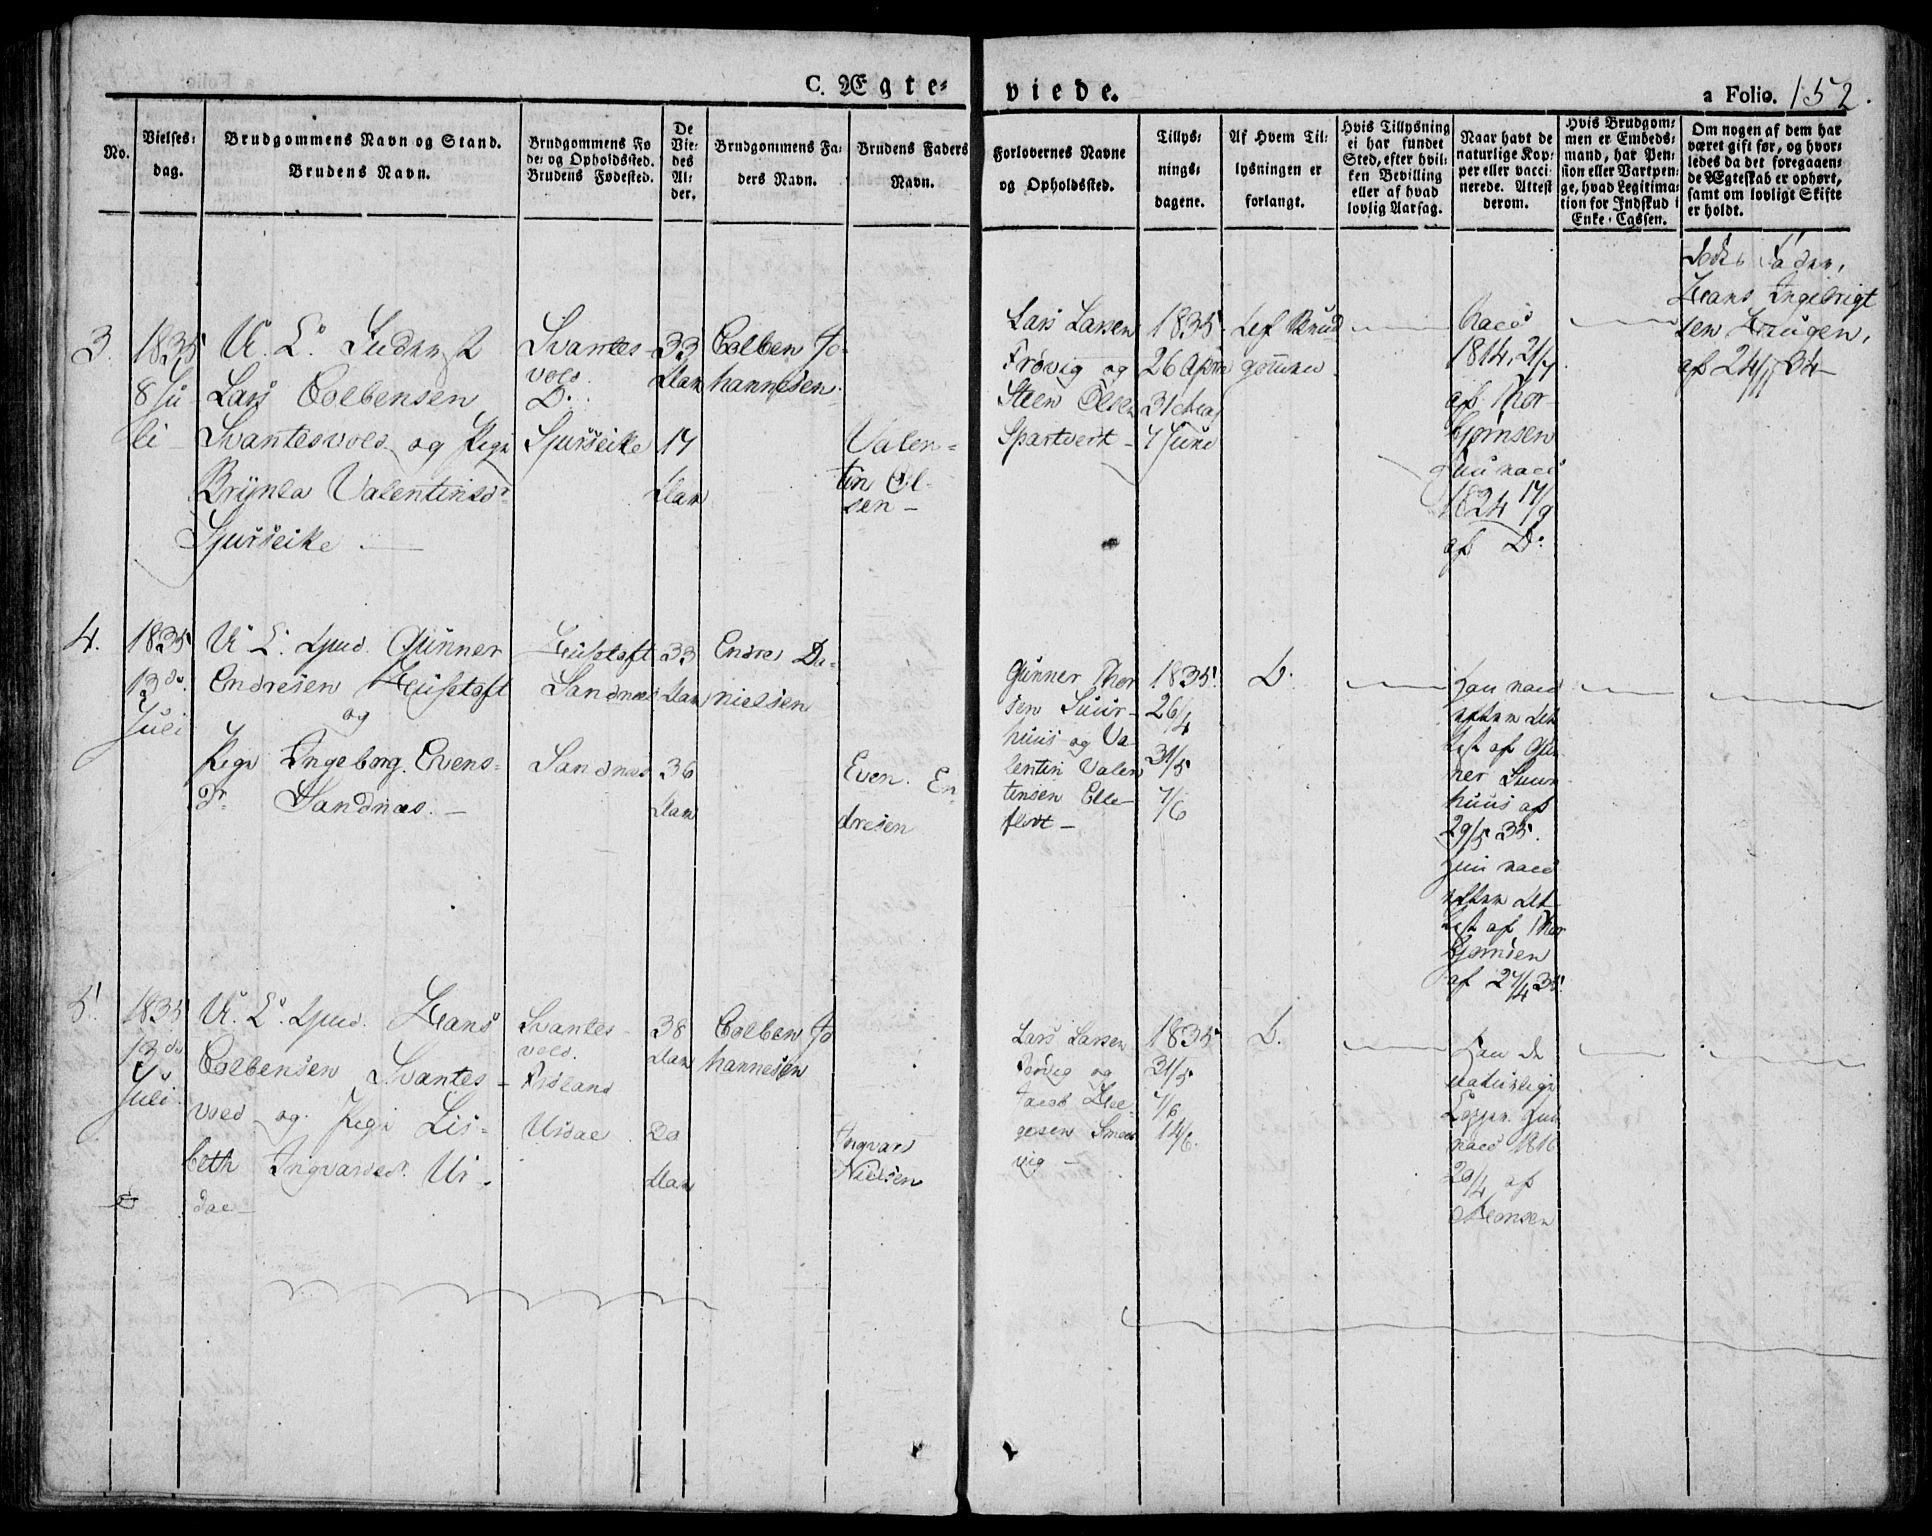 C. Ægte-
viede.
a Folio. 152.
No.
Vielses-
dag.
Brudgommens Navn og Stand.
Brudens Navn.
Brudgommens Fø
de- og Opholdssted.
Brudens Fødested.
De
Vie-
des
Al-
der.
Brudgommens Fa-
ders Navn.
Brudens Faders
Navn.
Forlovernes Navne
og Opholdssted.
Tillys-
nings-
dagene.
Af Hvem Til-
lysningen er
forlangt.
Hvis Tillysning
ei har fundet
Sted, efter hvil-
ken Bevilling
eller af hvad
lovlig Aarsag.
Naar havt de
naturlige Kop-
per eller vacci-
nerede. Attest
derom.
Hvis Brudgom-
men er Embeds-
mand, har Pen-
sion eller Vartpen-
ge, hvad Legitima-
tion for Indskud i
Enke-Cassen.
Om nogen af dem har
været gift før, og hvor-
ledes da det foregaaen-
de Ægteskab er ophørt,
samt om lovligt Skifte
er holdt.
Hans Ingebrigt
sen Haugen,
af 24/11 34
3.
1835
8 Ju
li
Lars Colbensen
Svantesvold og Pige
Brynla Valentinsdr
Sjurseike
Svantes-
vold.
D.
Sjurseike
33
Aar
17
Aar
Colben Jo-
hannesen.
Valen-
tin Ol-
sen
Lars Larsen
Frøvig og
Steen Olsen
Spartvert
1835
26 April
31 Maj
7 Juni
Lef Knud
1814, 21/7
af Thor-
bjørnsen
1824 17/9
af Do
4.
1835
13de
Juli
U. L. Gunner
Endresen Hustoft
og
Pige Ingeborg Evens-
Dr Sandnæs.
Hustoft
Sandnæs
Sandnæs
33
Aar
36
Aar
Endre Da-
nielsen
Even En-
dresen
Gunner Thor
sen Suur-
huus og Va
lentin Valen
tinsen Elle-
flodt
1835
26/4
31/5
7/6
D.
Han vacc
efter Att
est af Gun
ner Suur
huus af
29/5 35.
Hun vacc
efter Att
est af Thor
bjørnsen
af 27/4 35.
5.
1835
13de
Juli
U. L. Hans
Colbensen Svantes-
vold og Pige Lis-
beth Ingvarsdr. Ur-
dal
Svantes-
vold.
Urdal
38
Aar
20
Aar
Colben Jo
hannesen
Ingvar
Nielsen
Lars Larsen
Frøvig og
Jacob Hel-
gesen Smed
vig
1835
31/5
7/6
14/6.
D.
Han de
naturlige
Copper. Hun
vacc 1816
29/4 af